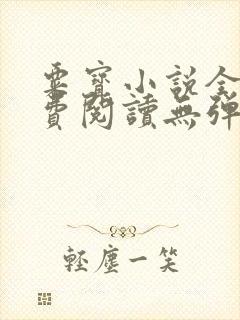 粟寶小說全
費閱讀無彈
輕塵一笑